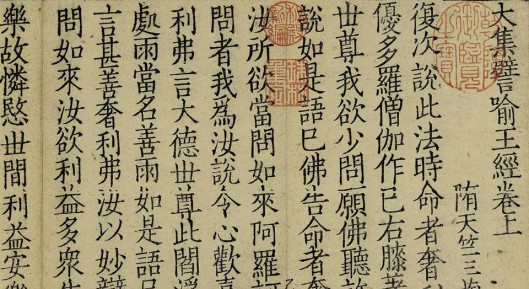 大集譬喻王經卷上
隋天竺三
復次說此法時命者奢利
優多羅僧伽作已右膝著
世尊我欲少問願佛聽許
說如是語已佛告命者奢
汝所欲當問如來阿羅訶
問者我爲汝說令心歡喜
利弗言大德世尊此閻浮
處雨當名善雨如是語已
言甚善奢利弗汝以妙辯
問如來汝欲利益多衆生
樂故憐愍世間利益安樂